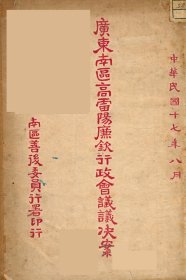 中華民國十七年八月
廣東南區高雷陽廉欽行政會議議决案
南區善後委員行署印行